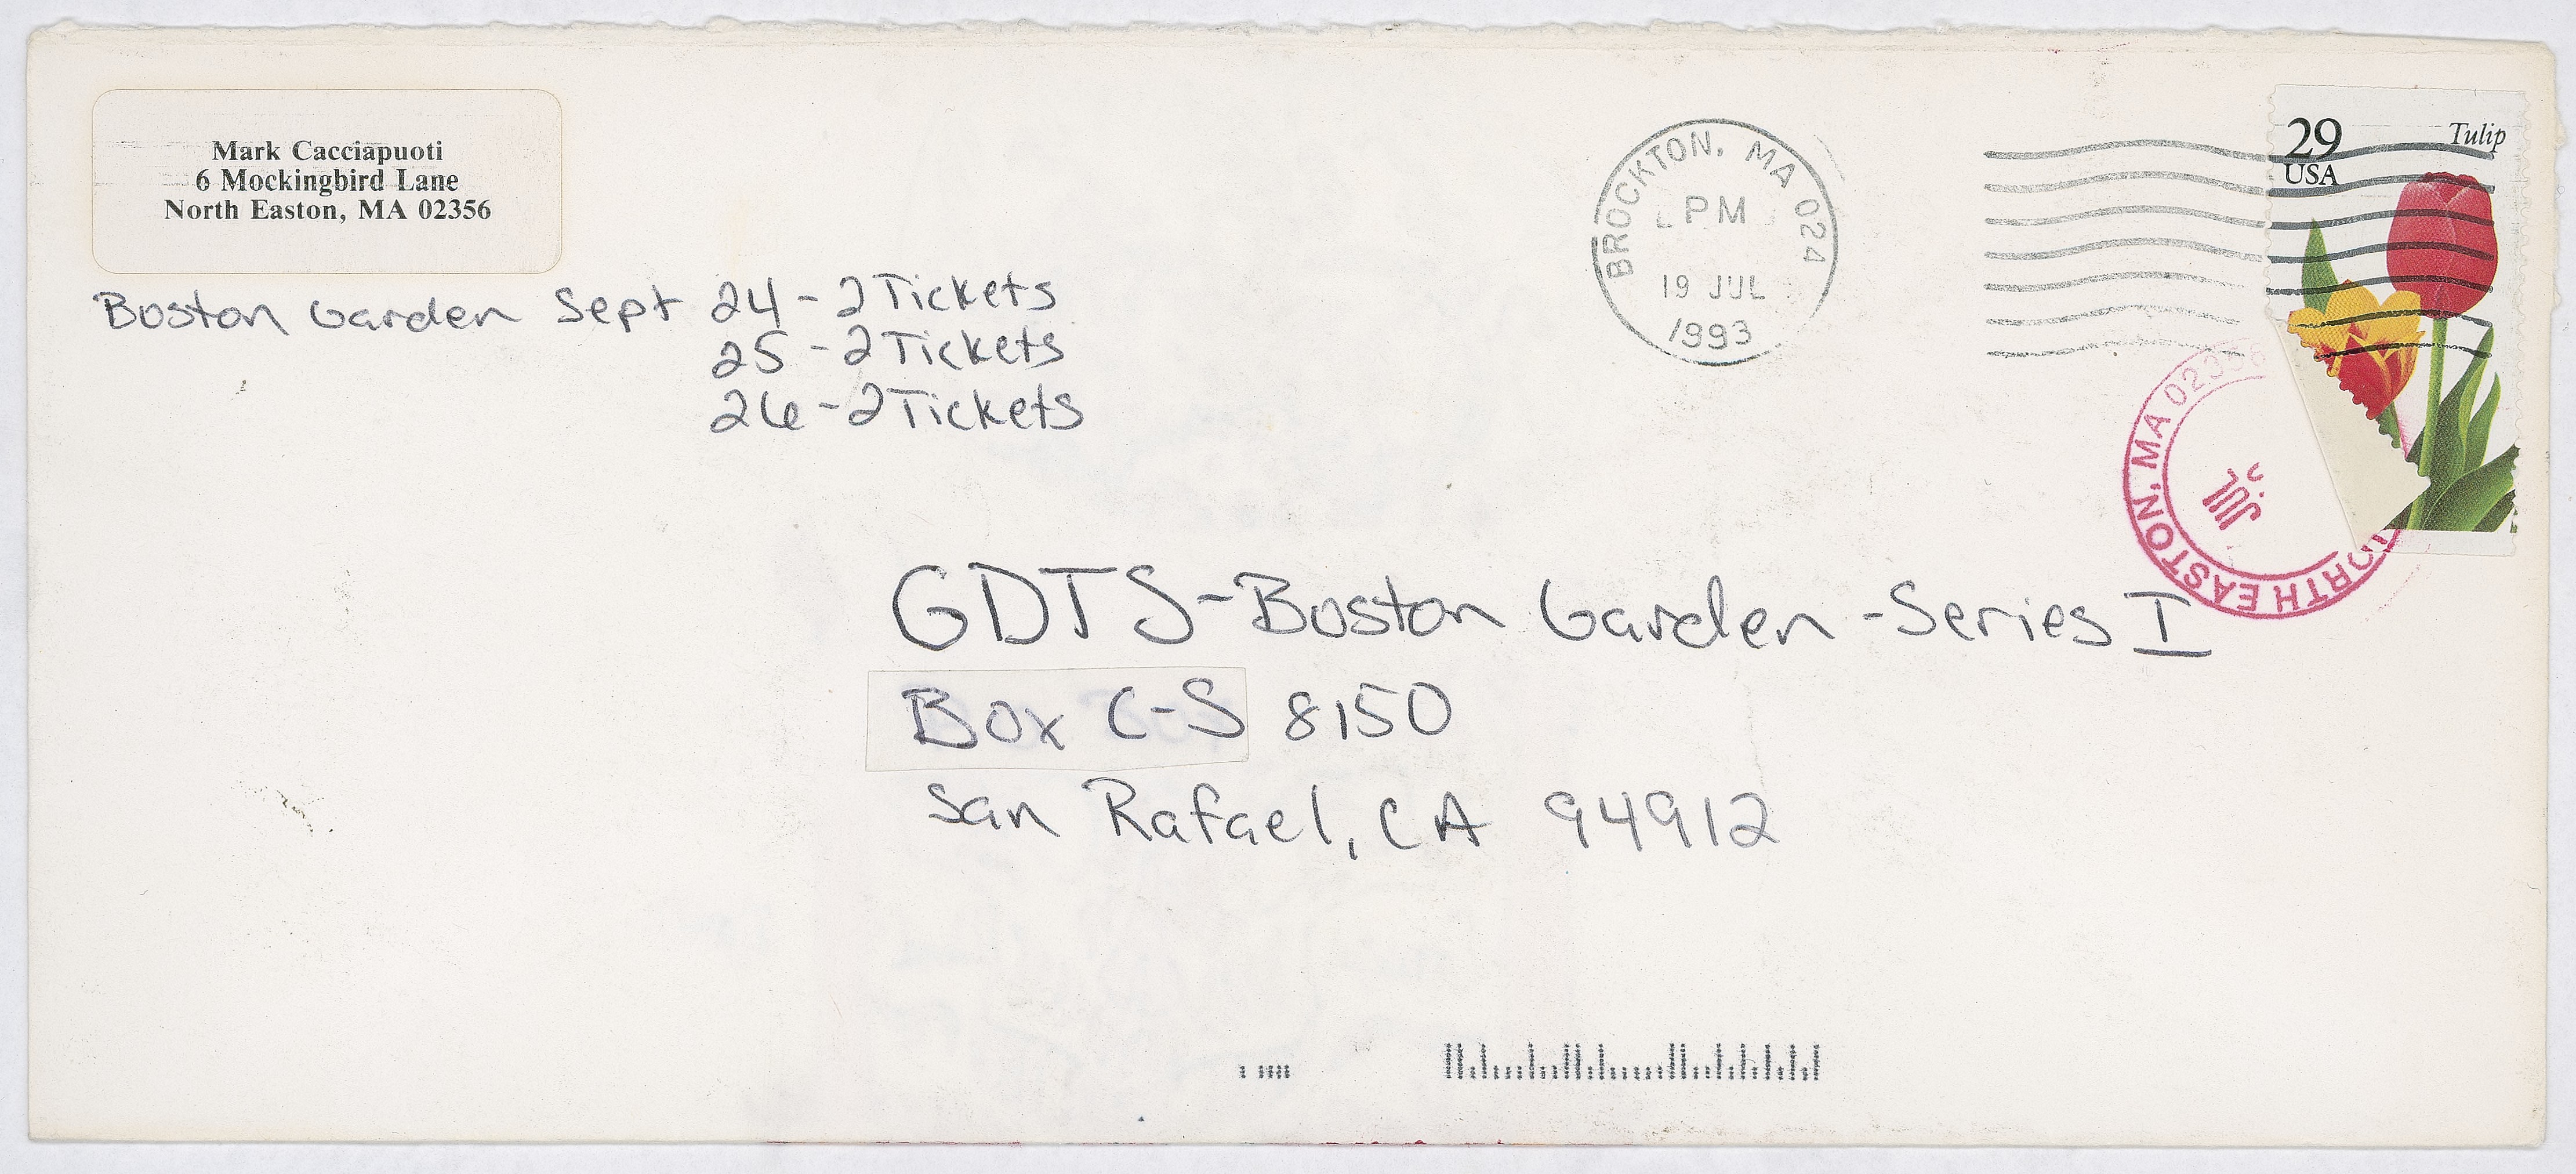 Mark Cacciapuoti
6 Mockingbird Lane
North Easton, MA 02356
Boston Garden Sept 24 - 2 Tickets
25 - 2 Tickets
26 - 2 Tickets
BROCKTON, MA 024
PM
19 JUL
1993
29
USA
Tulip
NORTH EASTON, MA 02356
JUL
GDTS - Boston Garden - Series I
Box C-S 8150
San Rafael, CA 94912